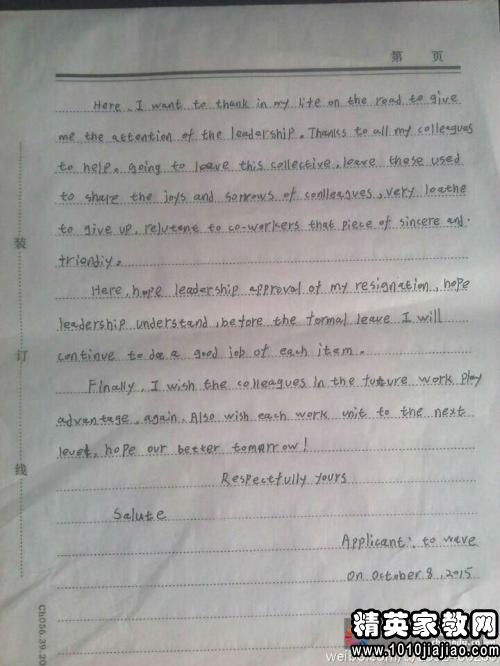 第 页
Here, I want to thank in my life on the road to give
me the attention of the leadership. Thanks to all my colleagues
to help. going to leave this collective, leave these used
to share the joys and sorrows of conlleagues, very loathe
to give up, relutent to co-workers that piece of sincere and
friendiy.
Here, hope leadership approval of my resignation, hope
leadership understand, before the formal leave I will
continue to do a good job of each item.
Finally, I wish the colleagues in the future work play
advantage, again. Also wish each work unit to the next
level, hope our better tomorrow!
Respectfully yours
Salute
Applicant: to wave
On October 8, 2015
装
订
线
精英家教网
www.1010jiajiao.com